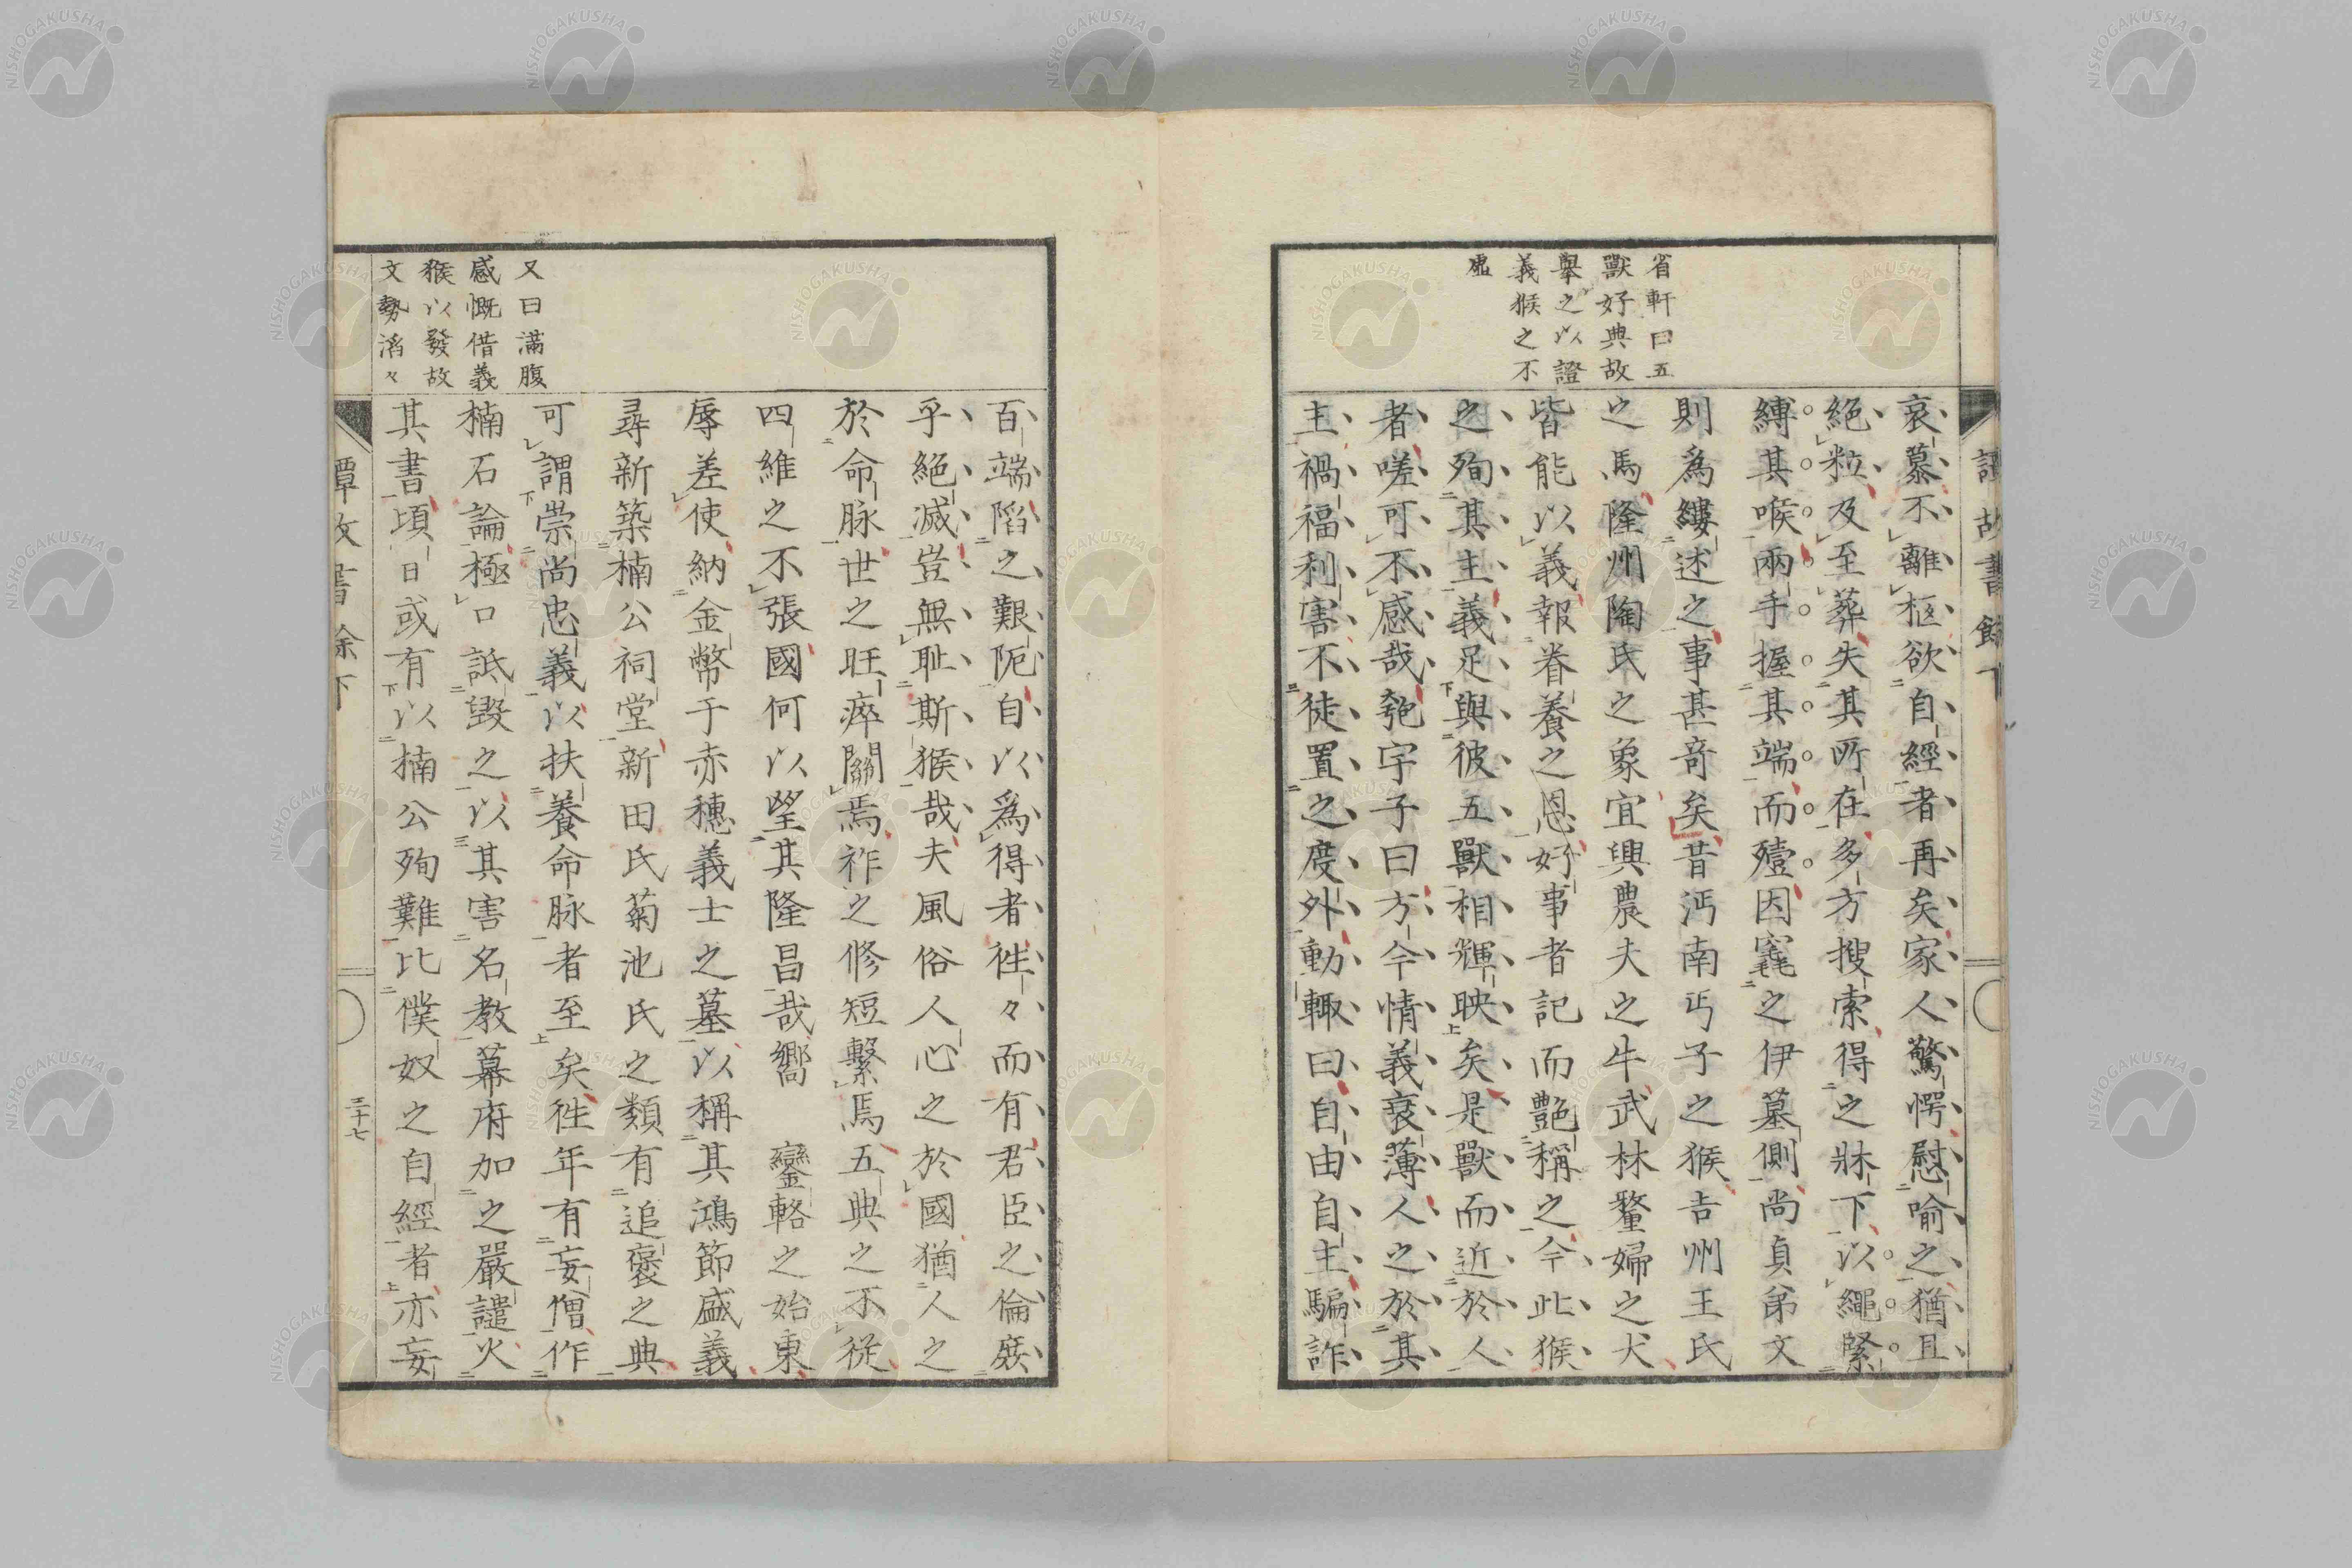 省軒曰五
獸好典故
擧之以證
義猴之不
虛
哀慕不離柩欲自經者再矣家人驚愕慰喻之猶且
絕粒及至葬失其所在多方搜索得之牀下以繩緊
縛其喉兩手握其端而殪因窆之伊墓側尚貞弟文
則爲縷述之事甚奇矣昔沔南丐子之猴吉州王氏
之馬隆州陶氏之象宜興農夫之牛武林嫠婦之犬
皆能以義報眷養之恩好事者記而艶稱之今此猴
之殉其主義足與彼五獸相輝映矣是獸而近於人
者嗟可不感哉匏宇子曰方今情義衰薄人之於其
主禍福利害不徒置之度外動輙曰自由自主騙詐
百端陷之艱阨自以爲得者徃々而有君臣之倫廢
乎絕滅豈無耻斯猴哉夫風俗人心之於國猶人之
於命脉世之旺瘁關焉祚之修短繫焉五典之不從
四維之不張國何以望其隆昌哉嚮 鑾輅之始東
辱差使納金幣于赤穗義士之墓以稱其鴻節盛義
尋新築楠公祠堂新田氏菊池氏之類有追褒之典
可謂崇尚忠義以扶養命脉者至矣徃年有妄僧作
楠石論極口詆毀之以其害名教幕府加之嚴譴火
其書頃日或有以楠公殉難比僕奴之自經者亦妄
又曰滿腹
感慨借義
猴以發故
文勢滔々
譚故書餘下
三十七